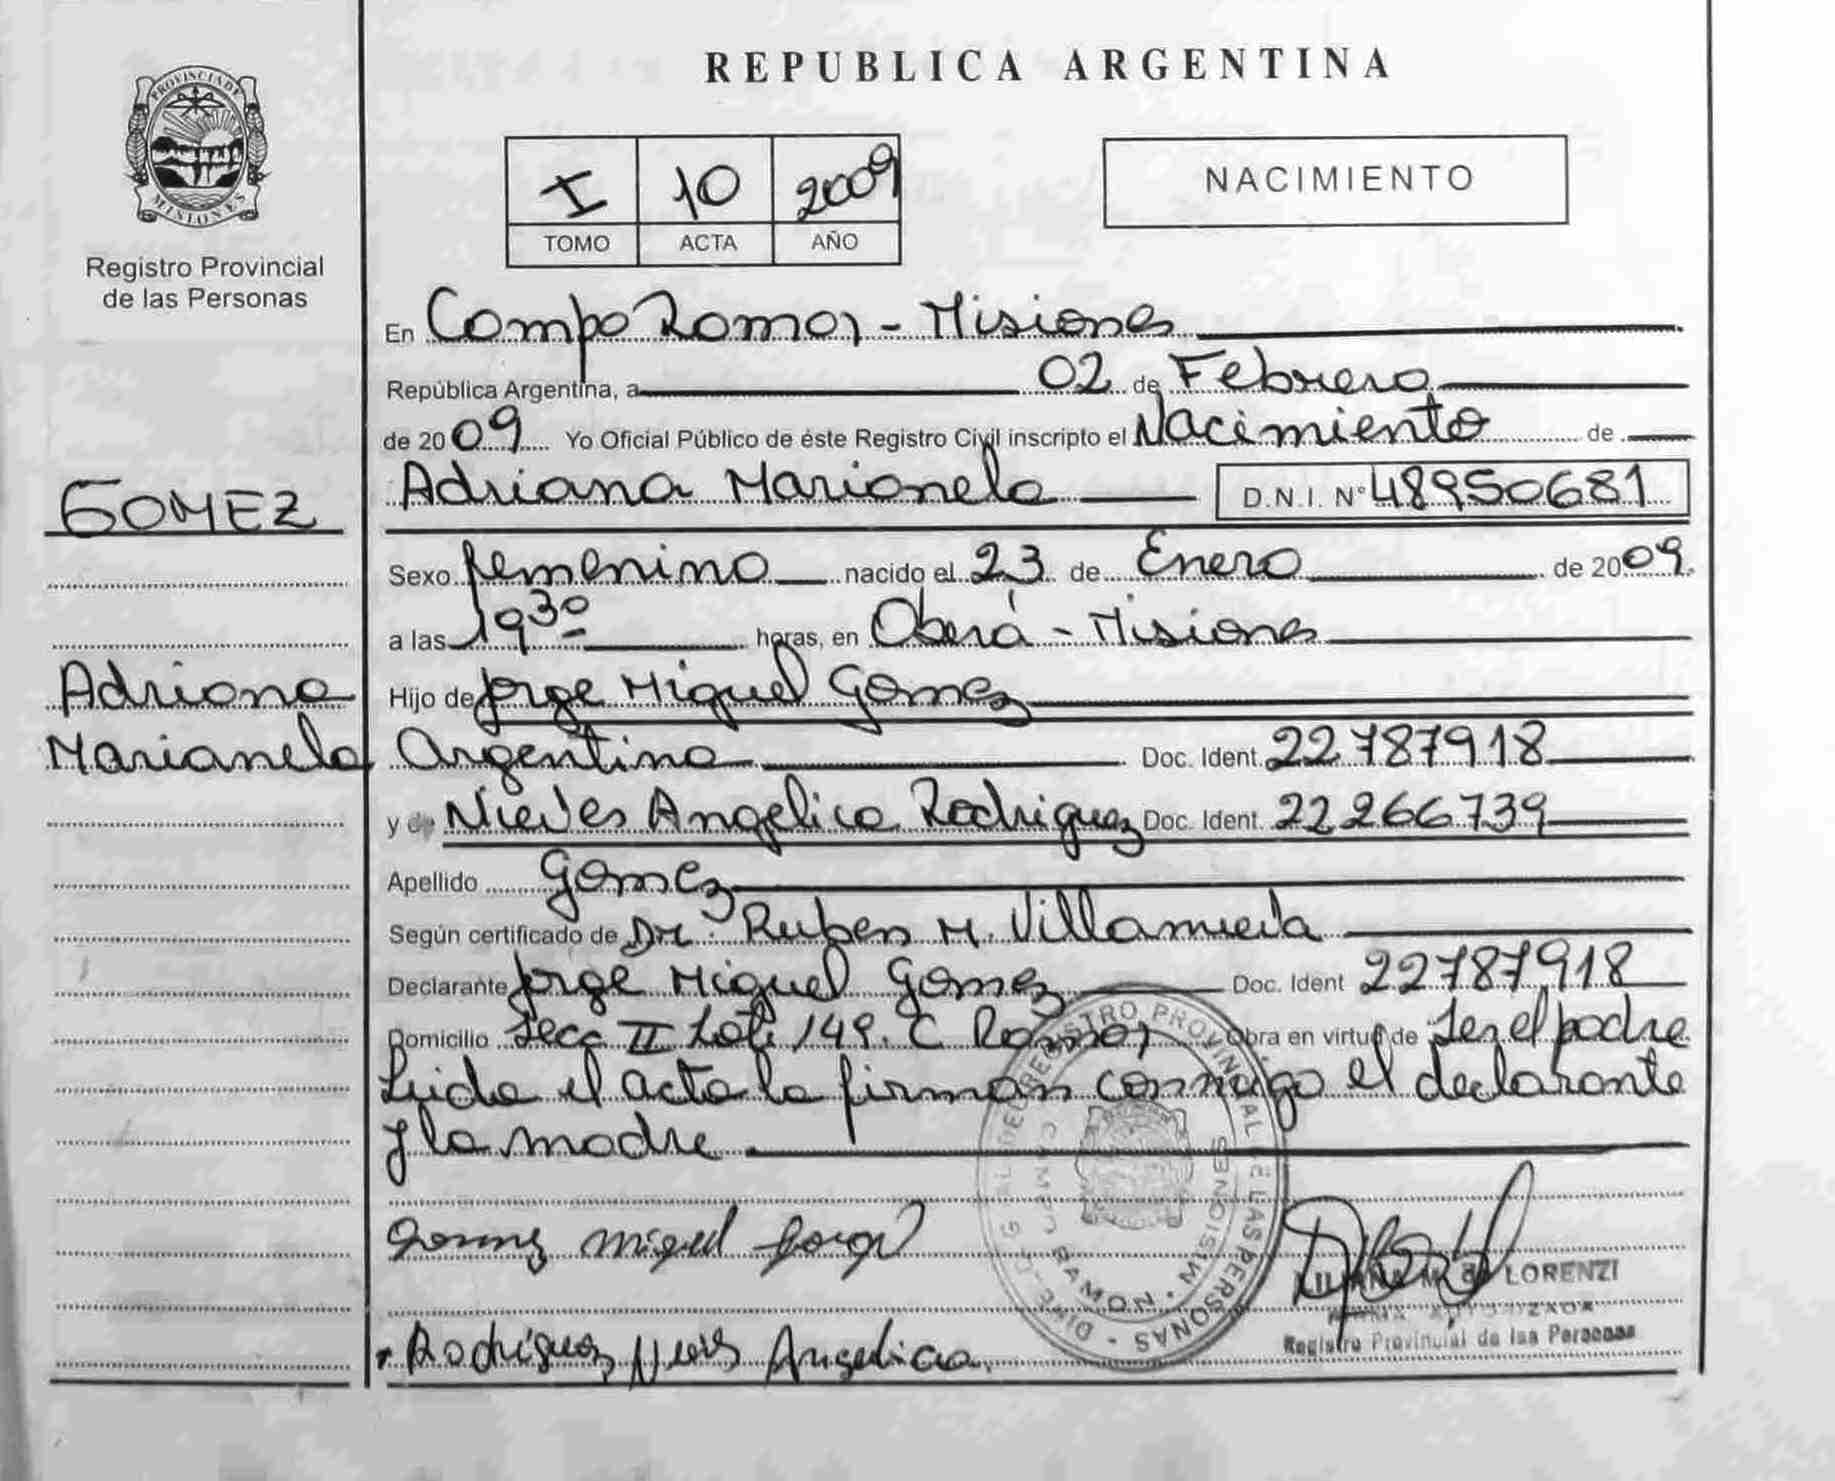 REPUBLICA ARGENTINA
PROVINCIA DE
MISIONES
Registro Provincial
de las Personas
I 10 2009
TOMO ACTA AÑO
NACIMIENTO
En Campo Ramon - Misiones
República Argentina, a 02 de Febrero
de 2009 Yo Oficial Público de éste Registro Civil inscripto el Nacimiento de
Adriana Marianela D.N.I. Nº 48950681
GOMEZ
Sexo femenino nacido el 23 de Enero de 2009
a las 19 30 horas, en Oberá - Misiones
Adriana
Marianela
Hijo de Jorge Miguel Gomez
Argentino Doc. Ident. 22787918
y de Nieves Angelica Rodriguez Doc. Ident. 22266739
Apellido Gomez
Según certificado de Dr. Ruben M. Villanueva
Declarante Jorge Miguel Gomez Doc. Ident 22787918
Domicilio Secc II Lote 149. C Ramon Obra en virtud de Ser el padre
Leida el acta la firman conmigo el declarante
y la madre
DEL REGISTRO PROVINCIAL DE LAS PERSONAS
CAMPO RAMON - MISIONES
Gomez Miguel Jorge
LILIANA M. de LORENZI
Registro Provincial de las Personas
Rodriguez Nieves Angelica.